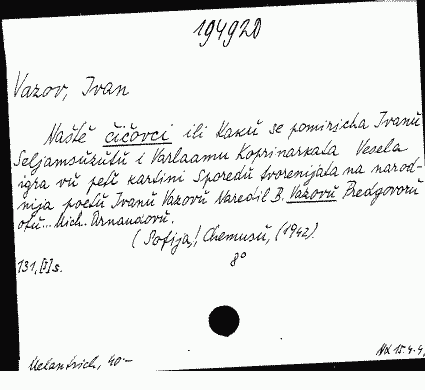 194920
Vazov, Ivan
Naště čičovci ili Kakŭ se pomiricha Ivanŭ
Seljamsŭzŭtŭ i Varlaamŭ Koprinarkata Vesela
igra vŭ petŭ kartini Sporedŭ tvorenijata na narod-
nija poetŭ Ivanŭ Vazovŭ Naredil B. Vazovŭ Predgovorŭ
otŭ... Mich. Arnaudovŭ.
(Sofija,) Chemusŭ, (1942).
131, [I] s. 8°
Melantrich, 40.-